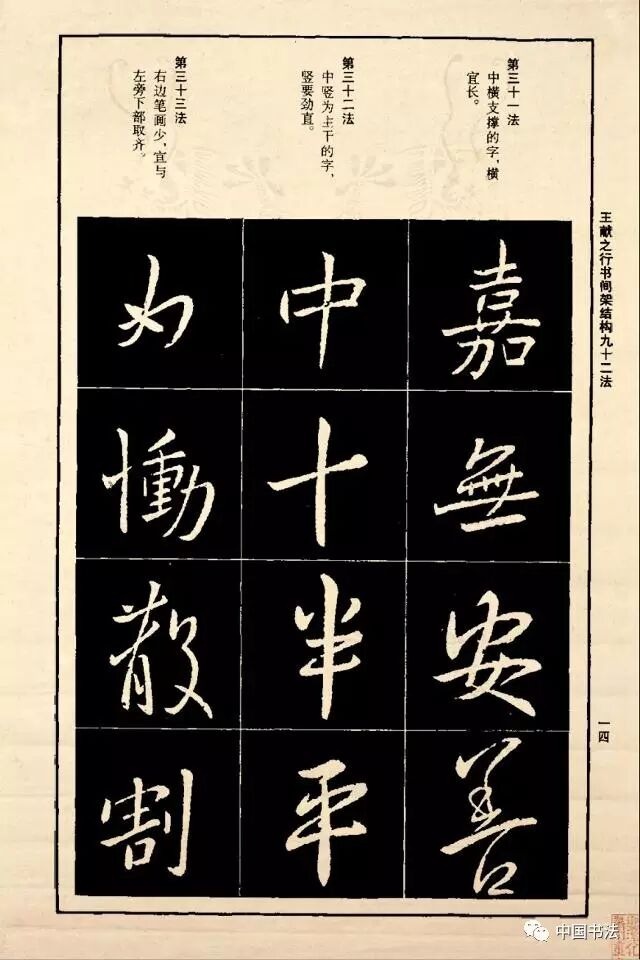 王献之行书间架结构九十二法
一四
第三十一法
中横支撑的字，横
宜长。
嘉無安善
第三十二法
中竖为主干的字，
竖要劲直。
中十半平
第三十三法
右边笔画少，宜与
左旁下部取齐。
慟散割
中国书法